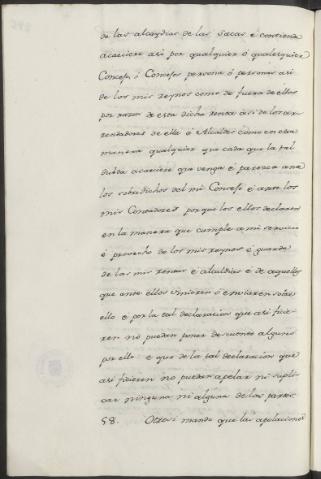 de las alcaydias de las sacas é contienda
acaeciere asi por qualquier ó qualesquier
Concejo ó Concejos persona ó personas asi
de los mis reynos como de fuera de ellos
por razon de esta dicha renta asi de los ar-
rendadores de ella ó Alcaldes como en otra
manera qualquier que cada que la tal
dubda acaeciere que venga é parezca ante
los sobredichos del mi Consejo é ante los
mis Contadores porque los ellos declaren
en la manera que cumple a mi servicio
é provecho de los mis reynos é guarda
de las mis rentas é alcaldias é de aquellos
que ante ellos vinieren ó enviaren sobre
ello é por la tal declaracion que asi ficie-
ren no puedan poner descuento alguno
por ello é que de la tal declaracion que
asi ficieren no puedan apelar ni supli-
car ninguna ni alguna de las partes
58. Otrosi mando que las apelaciones